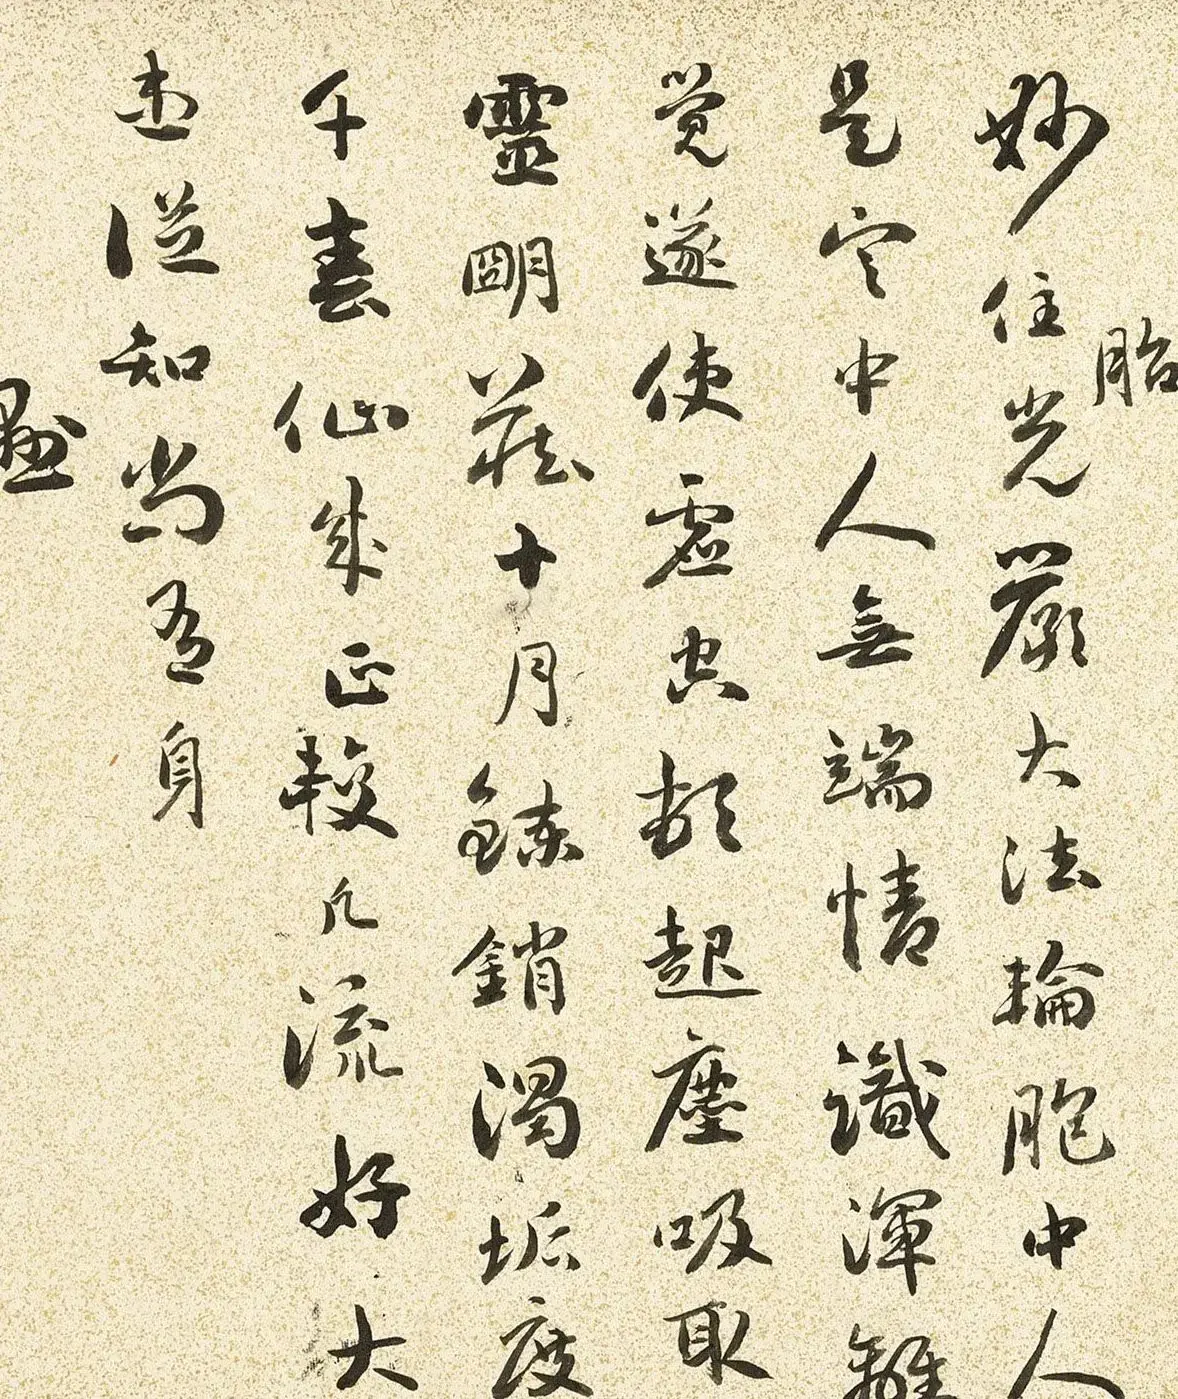 胎
妙住光嚴大法輪胞中人
是空中人無端情識渾離
覺遂使虛空頻起塵吸取
靈明藏十月鍊銷濁垢度
千春仙成正較凡流好大
患從知尚有身